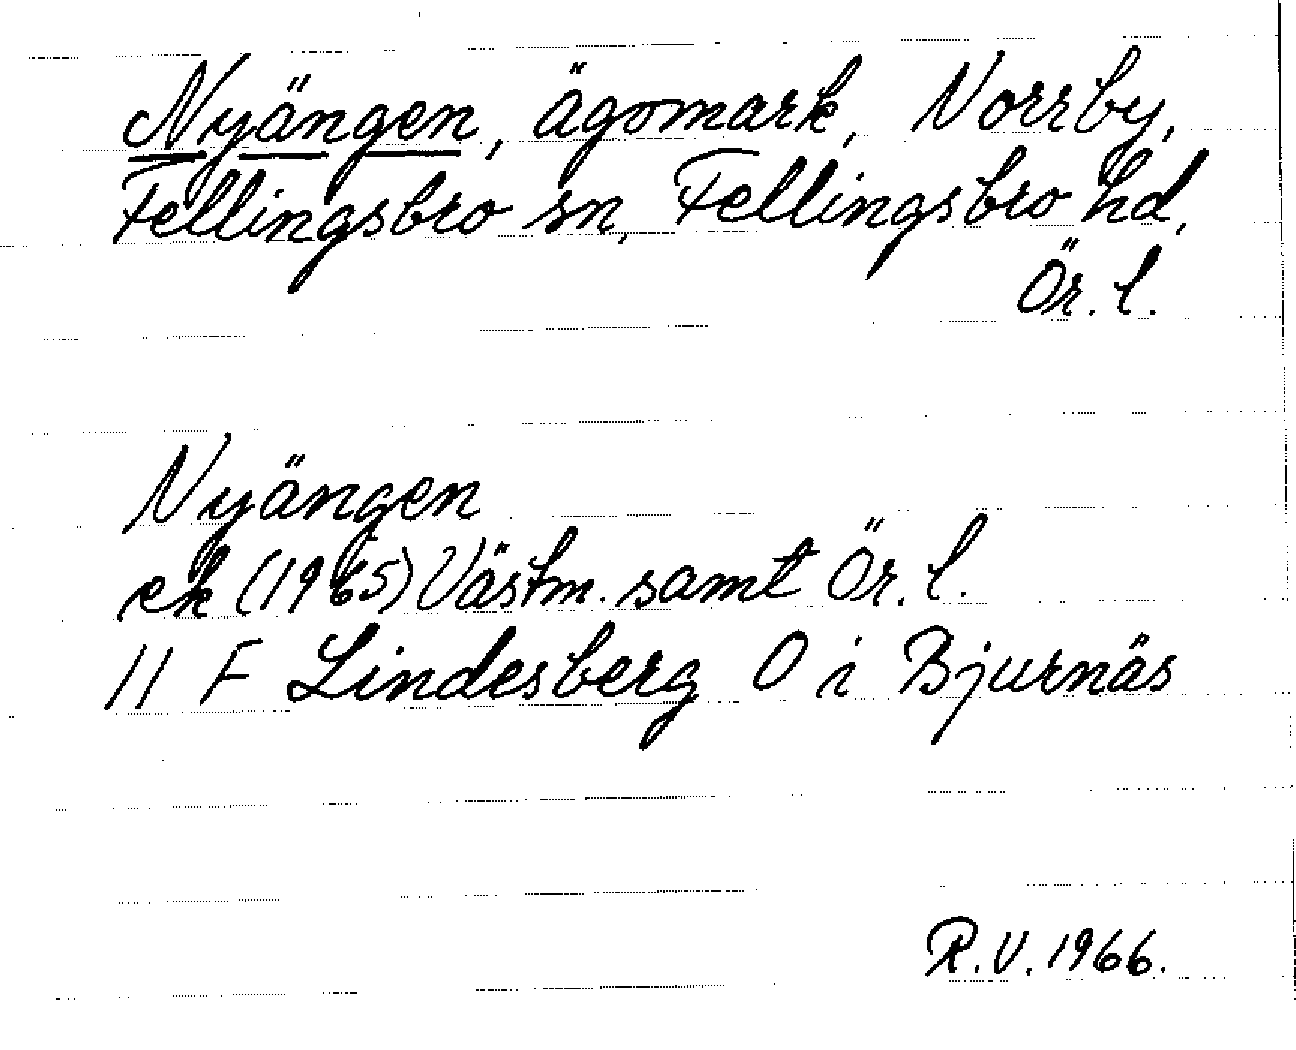 Nyängen, ägomark, Norrby,
Fellingsbro sn, Fellingsbro hd,
Ör. l.
Nyängen
ek (1965) Västm. samt Ör. l.
11 F Lindesberg O i Bjurnäs
R.V. 1966.